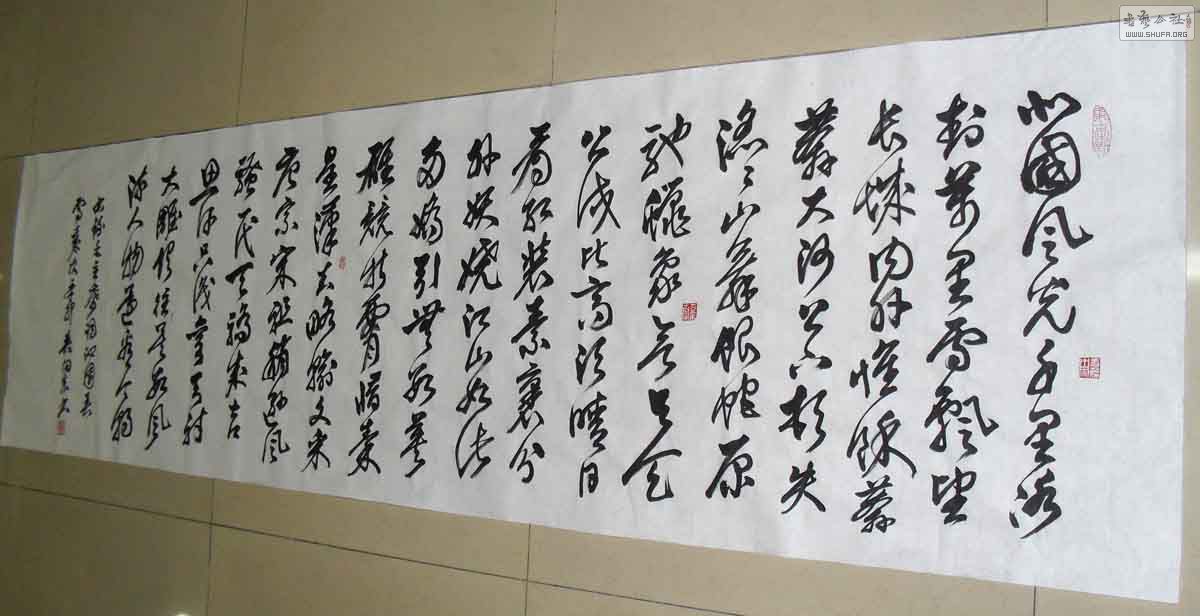 北國风光千里冰
封萬里雪飘望
长城内外惟馀莽
莽大河上下顿失
滔滔山舞银蛇原
驰蠟象欲与天
公试比高须晴日
看红装素裹分
外妖娆江山如此
多娇引無数英
雄競折腰惜秦
皇漢武略输文采
唐宗宋祖稍逊风
骚一代天骄成吉
思汗只识弯弓射
大雕俱往矣数风
流人物还看今朝
右录毛主席词沁園春
雪 辛卯
书艺公社
WWW.SHUFA.ORG